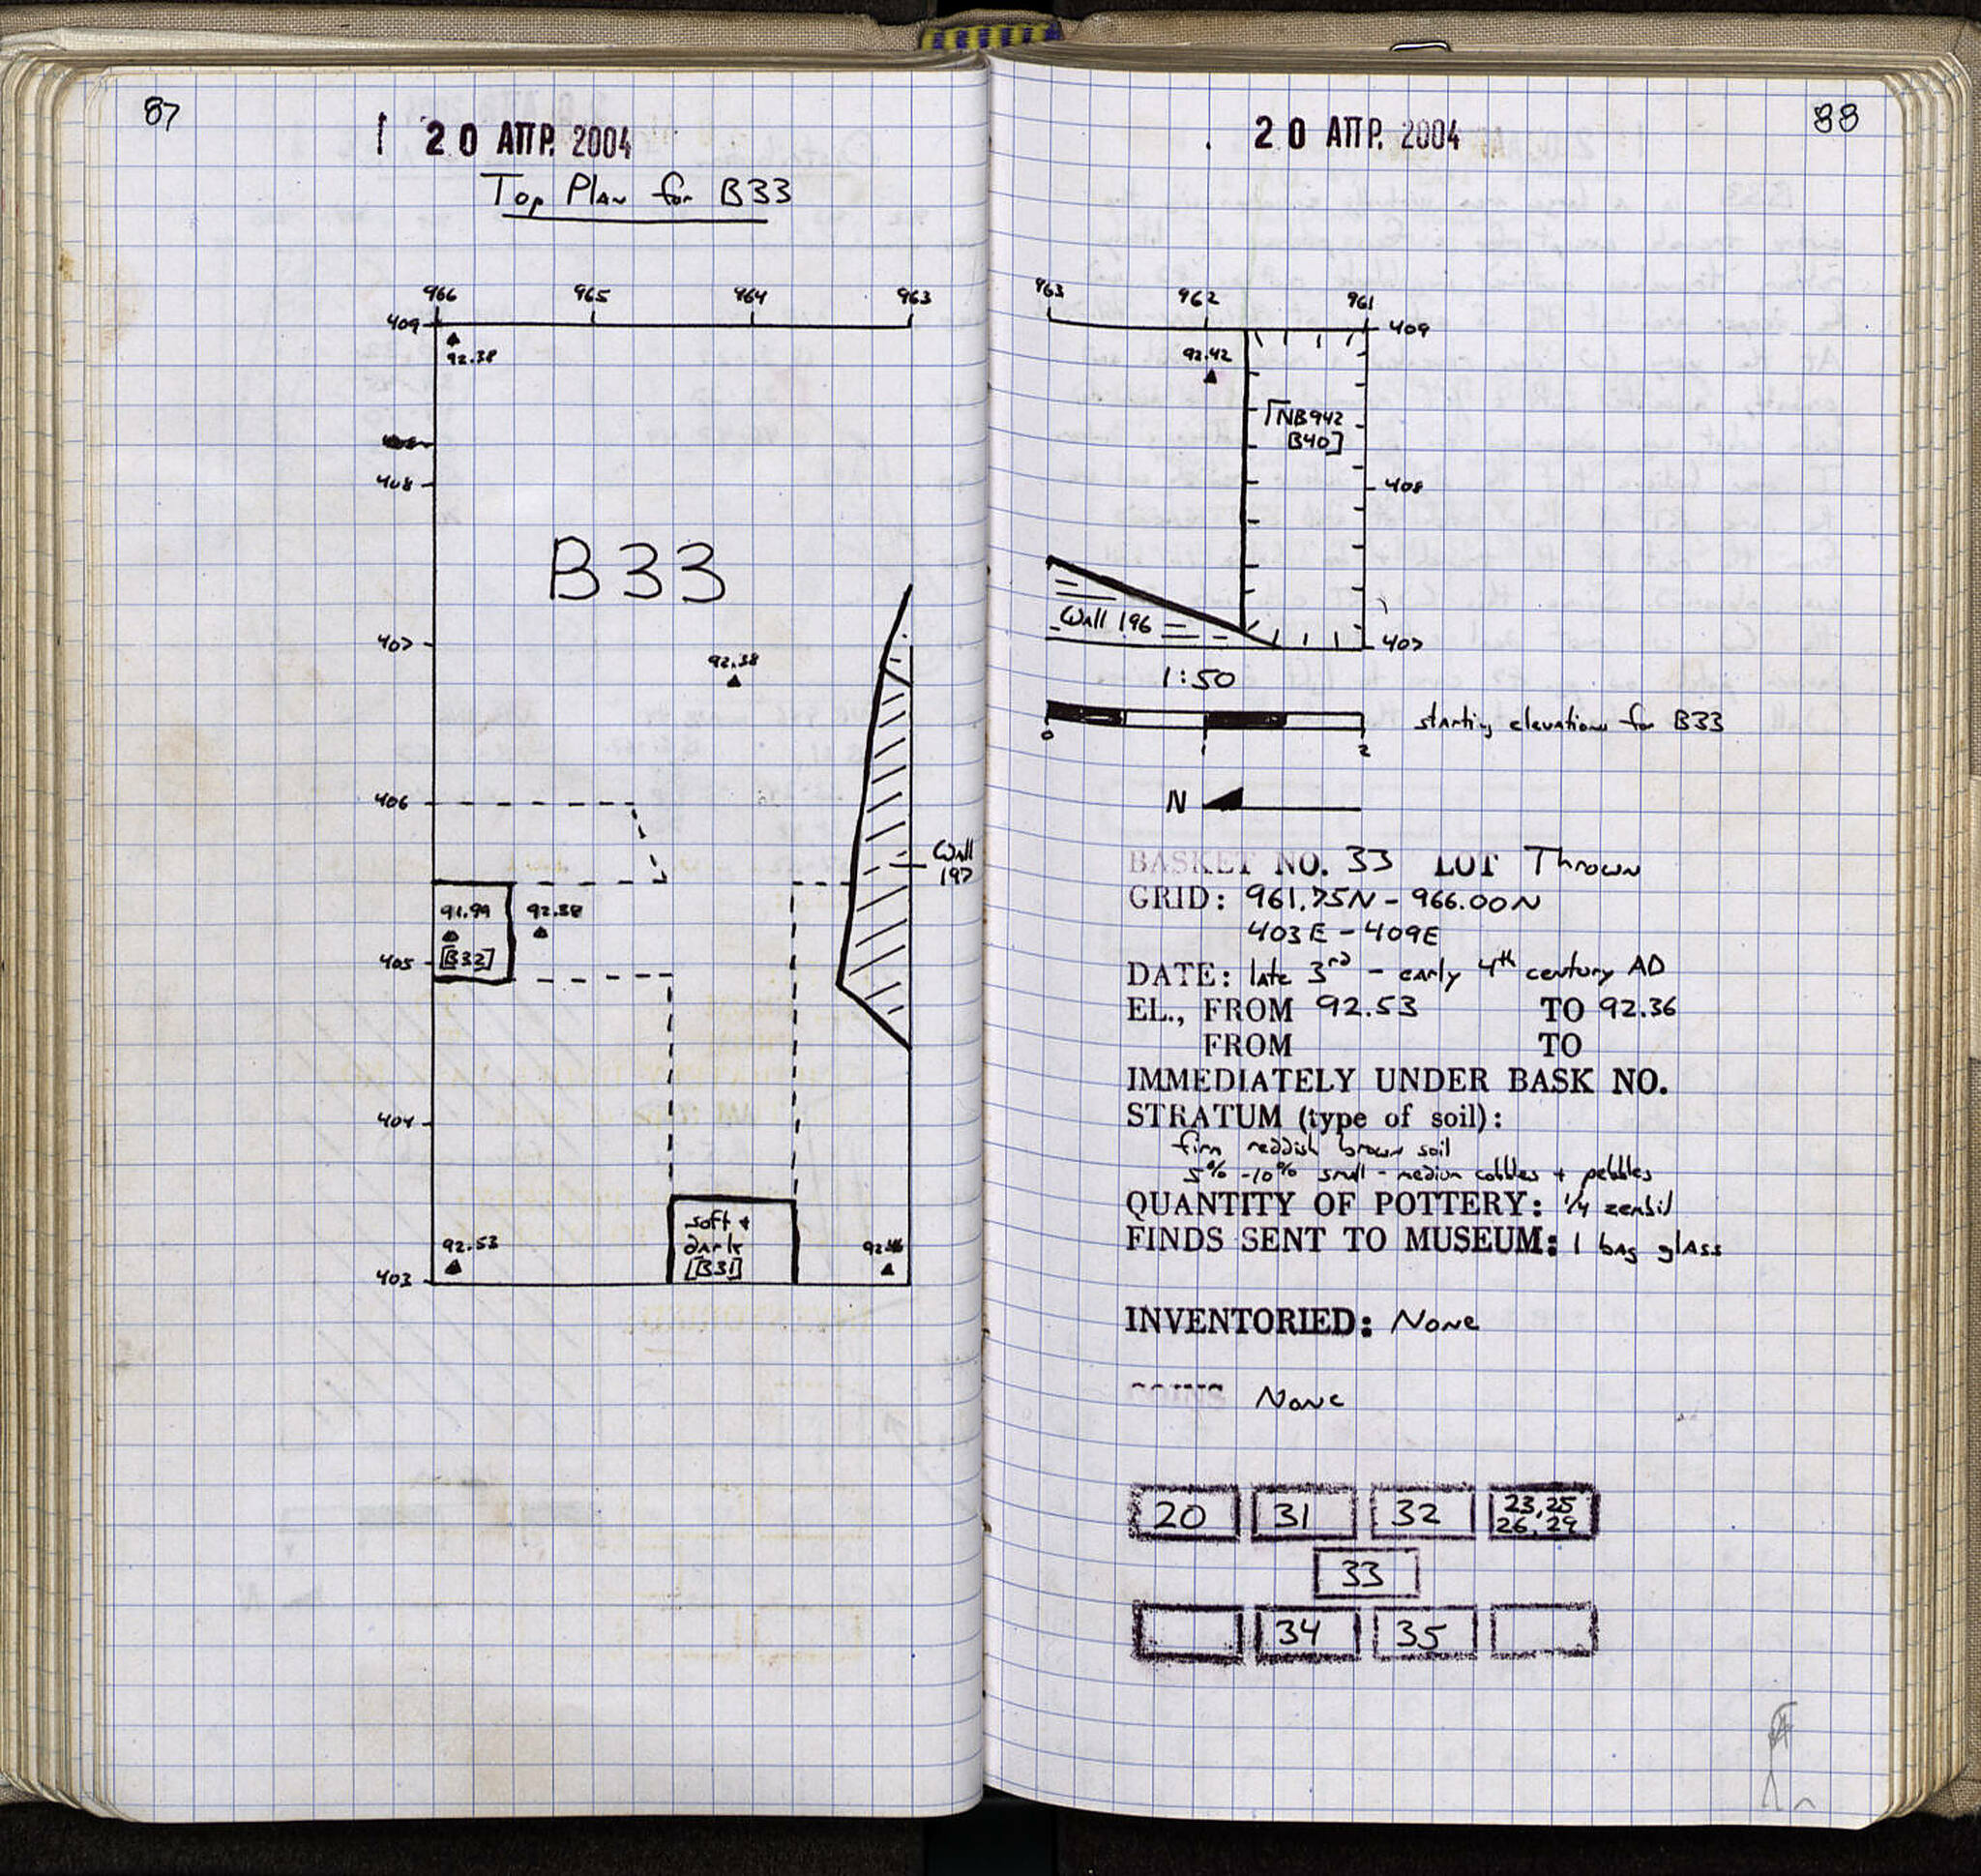 87
20 ΑΠΡ. 2004
Top Plan for B33
966 965 964 963
409
92.38
408
B33
407
92.38
406
Wall
197
91.99 92.38
[B32]
405
404
soft +
dark
[B31]
92.53
403
88
20 ΑΠΡ. 2004
963 962 961
409
92.42
[NB942
B40]
408
Wall 196
407
1:50
starting elevations for B33
0 1 2
N
BASKET NO. 33 LOT Thrown
GRID: 961.75N - 966.00N
403E - 409E
DATE: late 3rd - early 4th century AD
EL., FROM 92.53 TO 92.36
FROM TO
IMMEDIATELY UNDER BASK NO.
STRATUM (type of soil):
firm reddish brown soil
5% - 10% small - medium cobbles + pebbles
QUANTITY OF POTTERY: 1/4 zembil
FINDS SENT TO MUSEUM: 1 bag glass
INVENTORIED: None
None
20 31 32 23, 25
26, 29
33
34 35